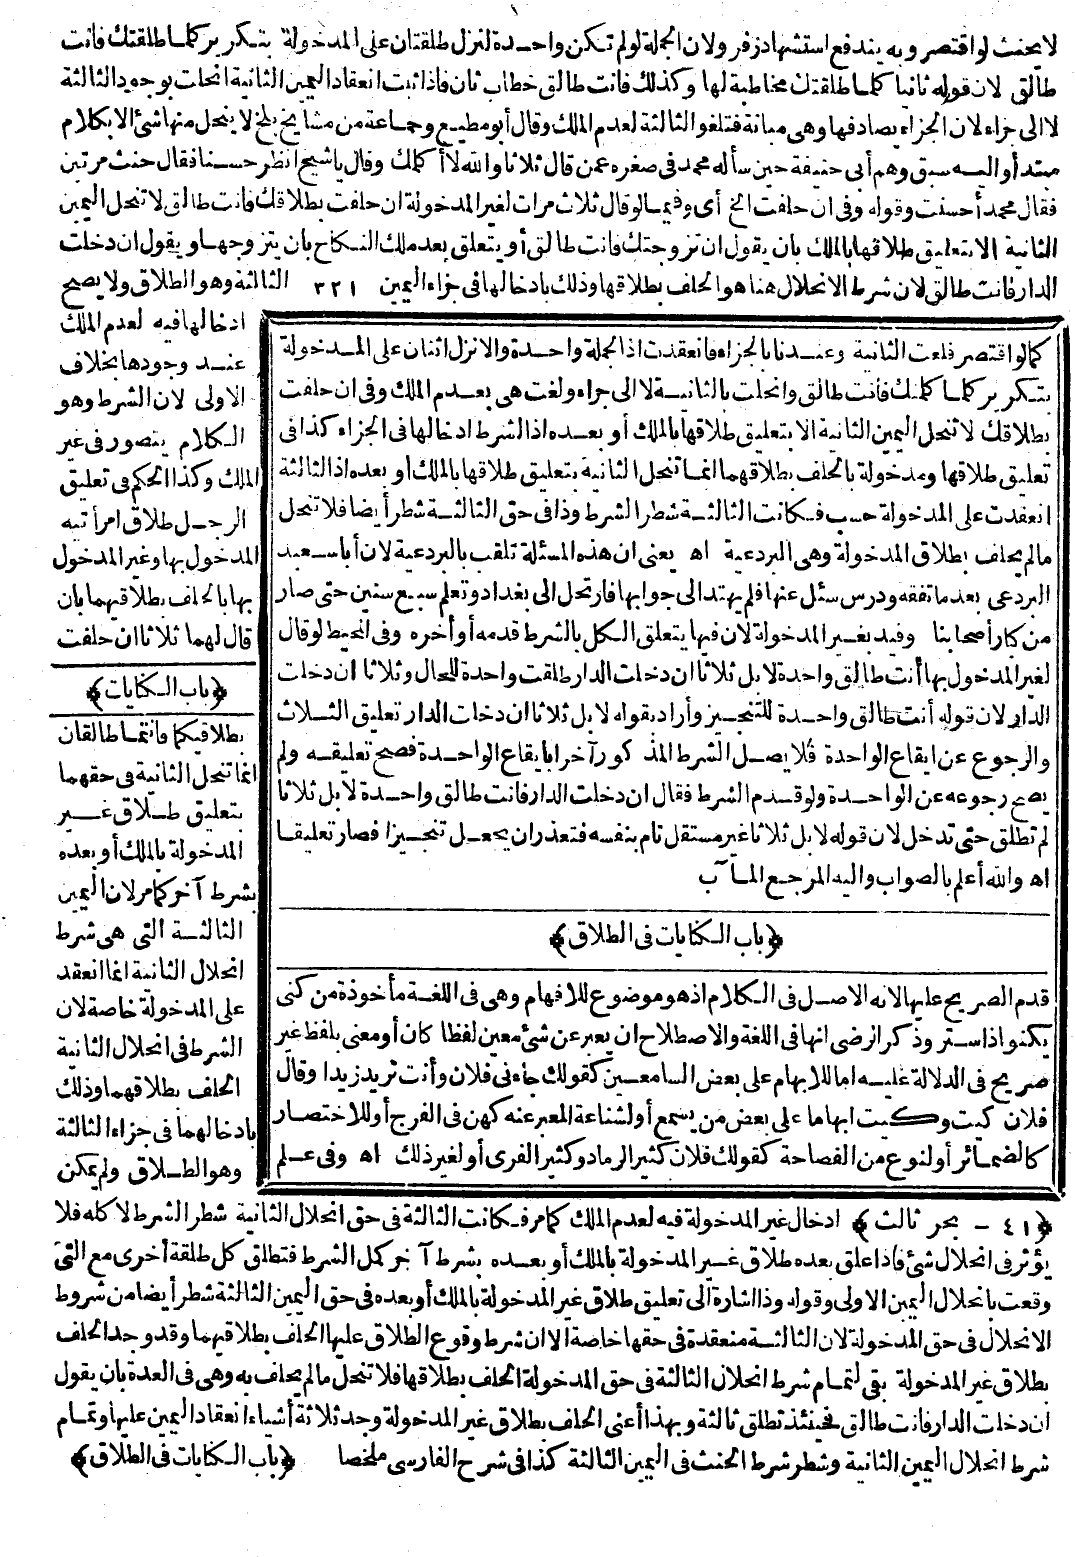 لا يحنث لو اقتصر وبه يندفع استشهاد زفر ولان الجملة لو لم تكن واحدة لنزل طلقتان على المدخولة بتكرير كلما طلقتك فانت
طالق لان قوله ثانيا كلما طلقتك مخاطبة لها وكذلك فانت طالق خطاب ثان فاذا ثبت انعقاد اليمين الثانية انحلت بوجود الثالثة
لا الى جزاء لان الجزاء يصادفها وهى مبانة فتلغو الثالثة لعدم الملك وقال أبو مطيع وجماعة من مشايخ بلخ لا ينحل منها شئ الا بكلام
مبتدأ واليه سبق وهم أبى حنيفة حين سأله محمد فى صغره عمن قال ثلاثا والله لا أكلمك وقال يا شيخ انظر حسنا فقال حنث مرتين
فقال محمد أحسنت وقوله وفى ان حلفت الخ أى وفيما لو قال ثلاث مرات لغير المدخولة ان حلفت بطلاقك فانت طالق لا تنحل اليمين
الثانية الا بتعليق طلاقها بالملك بان يقول ان تزوجتك فانت طالق أو يتعلق بعد ملك النكاح بان يتزوجها ويقول ان دخلت
الدار فانت طالق لان شرط الانحلال هنا هو الحلف بطلاقها وذلك بادخالها فى جزاء اليمين ٣٢١ الثالثة وهو الطلاق ولا يصح
ادخالها فيه لعدم الملك
عند وجودها بخلاف
الاولى لان الشرط وهو
الكلام يتصور فى غير
الملك وكذا الحكم فى تعليق
الرجل طلاق امرأتيه
المدخول بها وغير المدخول
بها بالحلف بطلاقهما بان
قال لهما ثلاثا ان حلفت
﴿باب الكنايات﴾
بطلاقكما فانتما طالقان
انما تنحل الثانية فى حقهما
بتعليق طلاق غير
المدخولة بالملك أو بعده
بشرط آخر كما مر لان اليمين
الثالثة التى هى شرط
انحلال الثانية انما انعقد
على المدخولة خاصة لان
الشرط فى انحلال الثانية
الحلف بطلاقهما وذلك
بادخالهما فى جزاء الثالثة
وهو الطلاق ولم يمكن
كما لو اقتصر فلغت الثانية وعندنا بالجزاء فانعقدت اذ الجملة واحدة والا نزل اثنان على المدخولة
بتكرير كلما كلمتك فانت طالق وانحلت بالثانية لا الى جزاء ولغت هى بعدم الملك وفى ان حلفت
بطلاقك لا تنحل اليمين الثانية الا بتعليق طلاقها بالملك أو بعده اذ الشرط ادخالها فى الجزاء كذا فى
تعليق طلاقها ومدخولة بالحلف بطلاقهما انما تنحل الثانية بتعليق طلاقها بالملك أو بعده اذ الثالثة
انعقدت على المدخولة حسب فكانت الثالثة شطر الشرط وذا فى حق الثالثة شطر أيضا فلا تنحل
ما لم يحلف بطلاق المدخولة وهى البردعية اه يعنى ان هذه المسئلة تلقب بالبردعية لان أبا سعيد
البردعى بعد ما تفقه ودرس سئل عنها فلم يهتد الى جوابها فارتحل الى بغداد وتعلم سبع سنين حتى صار
من كبار أصحابنا وقيد بغير المدخولة لان فيها يتعلق الكل بالشرط قدمه أو أخره وفى المحيط لو قال
لغير المدخول بها أنت طالق واحدة لا بل ثلاثا ان دخلت الدار طلقت واحدة للحال وثلاثا ان دخلت
الدار لان قوله أنت طالق واحدة للتنجيز وأراد بقوله لا بل ثلاثا ان دخلت الدار تعليق الثلاث
والرجوع عن ايقاع الواحدة فلا يصل الشرط المذكور آخرا بايقاع الواحدة فصح تعليقه ولم
يصح رجوعه عن الواحدة ولو قدم الشرط فقال ان دخلت الدار فانت طالق واحدة لا بل ثلاثا
لم تطلق حتى تدخل لان قوله لا بل ثلاثا غير مستقل تام بنفسه فتعذر ان يجعل تنجيزا فصار تعليقا
اه والله أعلم بالصواب واليه المرجع المآب
﴿باب الكنايات فى الطلاق﴾
قدم الصريح عليها لانه الاصل فى الكلام اذ هو موضوع للافهام وهى فى اللغة مأخوذة من كنى
يكنو اذا ستر وذكر الرضى انها فى اللغة والاصطلاح ان يعبر عن شئ معين لفظا كان أو معنى بلفظ غير
صريح فى الدلالة عليه اما للابهام على بعض السامعين كقولك جاءنى فلان وأنت تريد زيدا وقال
فلان كيت وكيت ابهاما على بعض من يسمع أو لشناعة المعبر عنه كهن فى الفرج أو للاختصار
كالضمائر أو لنوع من الفصاحة كقولك فلان كثير الرماد وكثير القرى أو لغير ذلك اه وفى علم
﴿٤١ - بحر ثالث﴾ ادخال غير المدخولة فيه لعدم الملك كما مر فكانت الثالثة فى حق انحلال الثانية شطر الشرط لا كله فلا
يؤثر فى انحلال شئ فاذا علق بعده طلاق غير المدخولة بالملك أو بعده بشرط آخر كمل الشرط فتطلق كل طلقة أخرى مع التى
وقعت بانحلال اليمين الاولى وقوله وذا اشارة الى تعليق طلاق غير المدخولة بالملك أو بعده فى حق اليمين الثالثة شطر أيضا من شروط
الانحلال فى حق المدخولة لان الثالثة منعقدة فى حقها خاصة الا ان شرط وقوع الطلاق عليها الحلف بطلاقهما وقد وجد الحلف
بطلاق غير المدخولة بقى لتمام شرط انحلال الثالثة فى حق المدخولة الحلف بطلاقها فلا تنحل ما لم يحلف به وهى فى العدة بان يقول
ان دخلت الدار فانت طالق فحينئذ تطلق ثالثة وبهذا أعنى الحلف بطلاق غير المدخولة وجد ثلاثة أشياء انعقاد اليمين عليها وتمام
شرط انحلال اليمين الثانية وشطر شرط الحنث فى اليمين الثالثة كذا فى شرح الفارسى ملخصا ﴿باب الكنايات فى الطلاق﴾